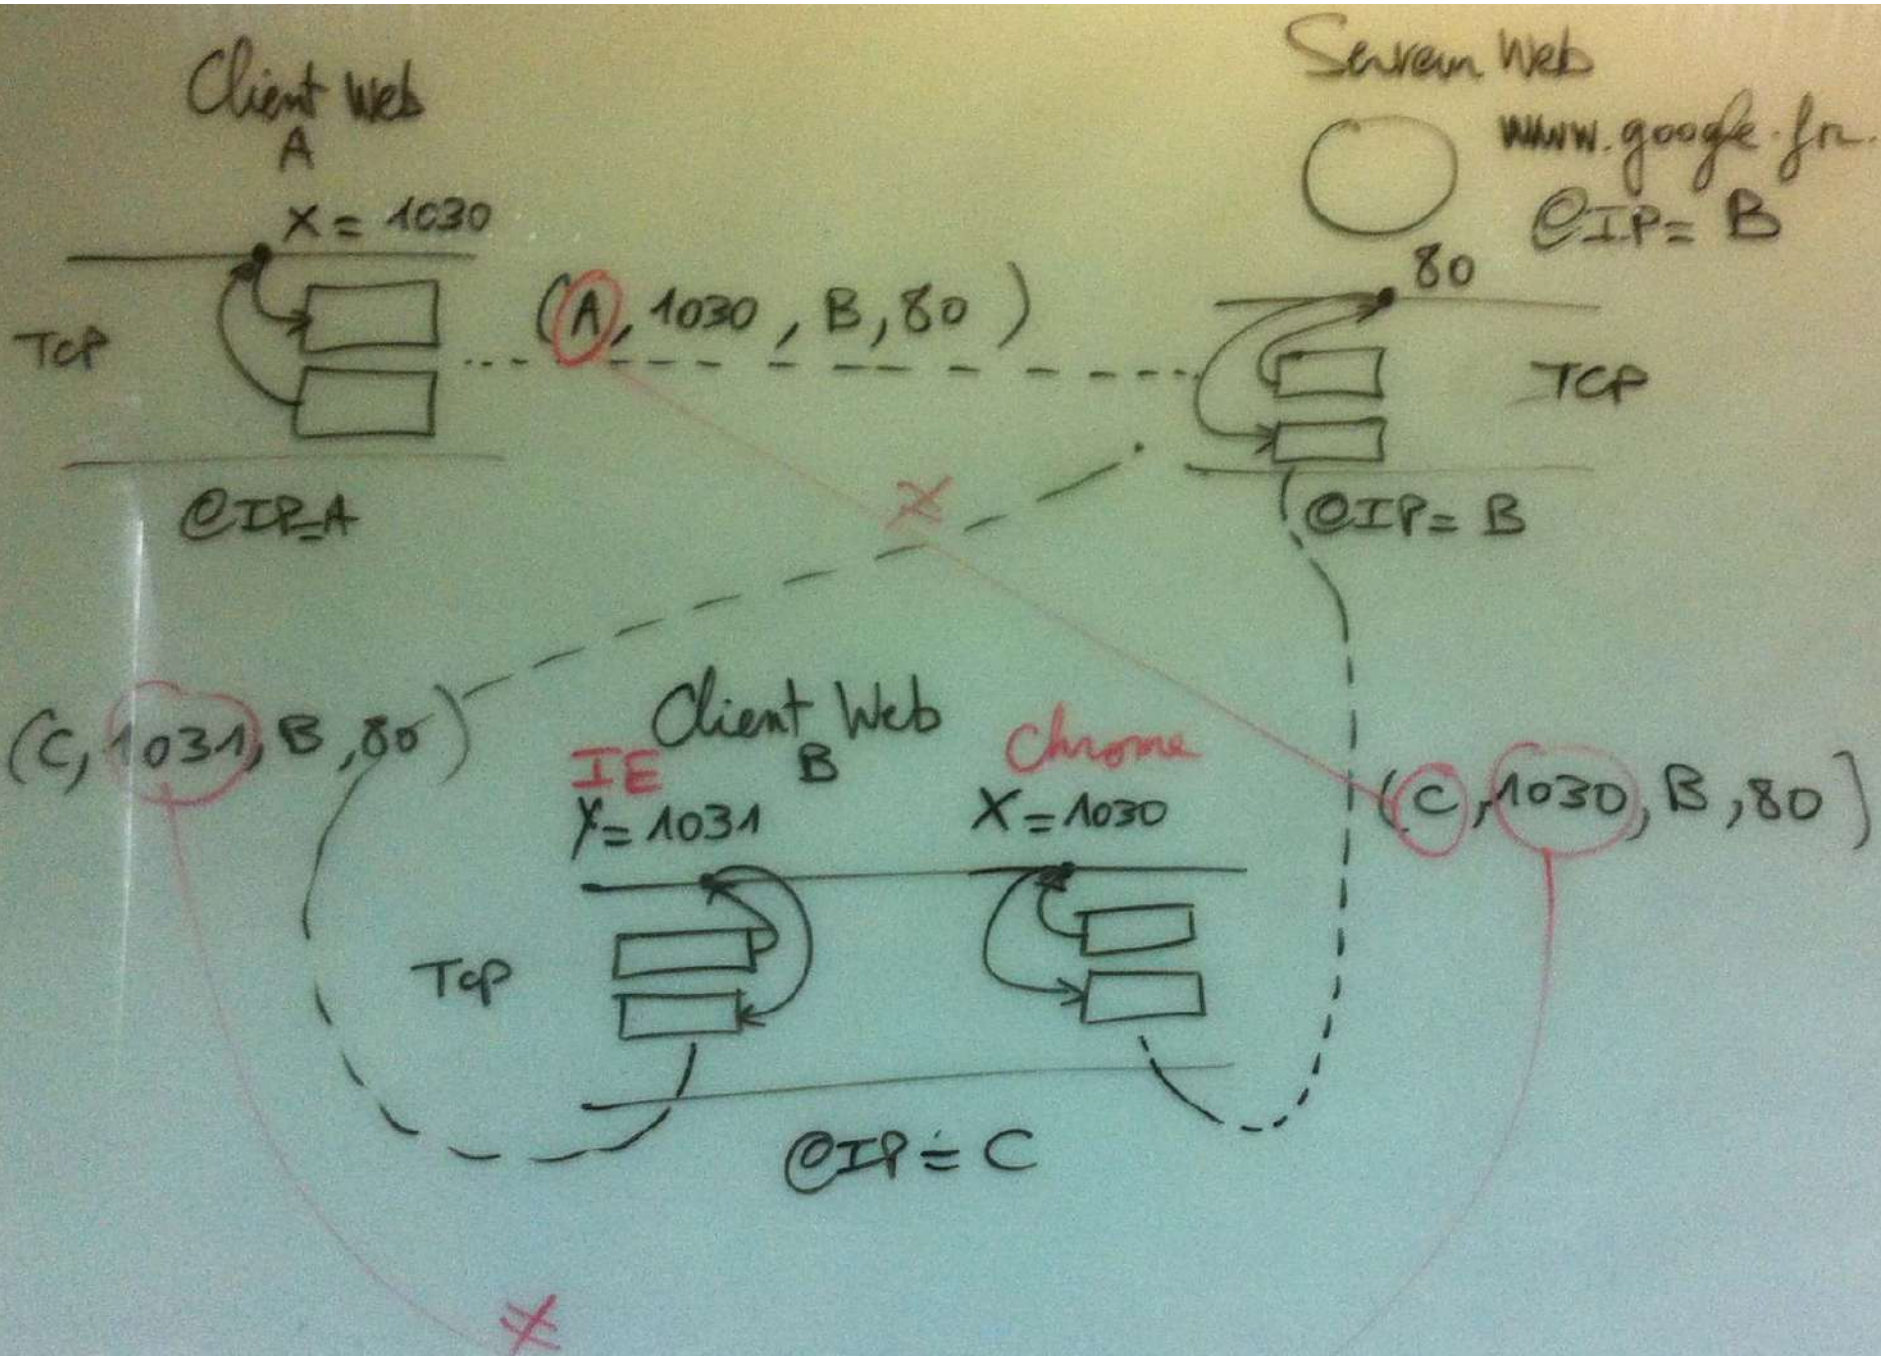 Client Web
A
X = 1030
TCP
@IP=A
(A, 1030, B, 80)
Serveur Web
www.google.fr.
@IP= B
80
TCP
@IP= B
≠
(C, 1031, B, 80)
Client Web
B
IE
Y= 1031
Chrome
X = 1030
(C, 1030, B, 80)
TCP
@IP = C
≠